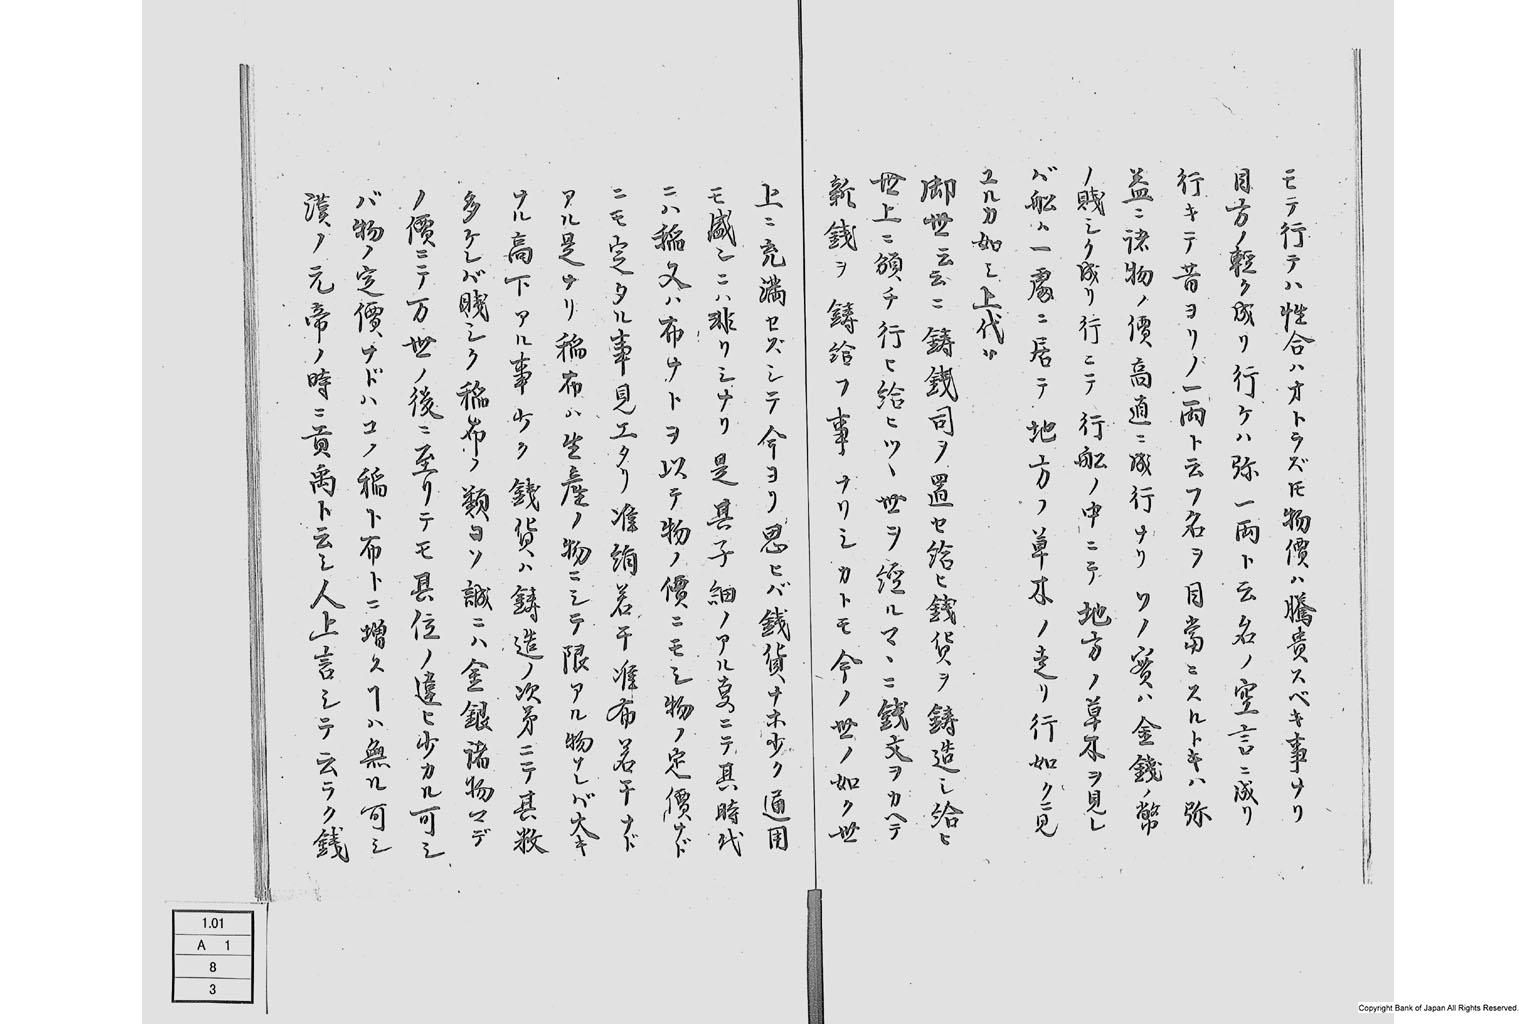 モテ行テハ性合ハオトラズ𪜈物價ハ騰貴スベキ事ナリ
目方ノ輕ク成リ行ケハ弥一両ト云名ノ空言ニ成リ
行キテ昔ヨリノ一両ト云フ名ヲ目當ニスルトキハ弥
益ニ諸物ノ價高直ニ成行ナリソノ實ハ金錢ノ幣
ノ賤シク成リ行ニテ行舩ノ中ニテ地方ノ草木ヲ見レ
バ舩ハ一處ニ居テ地方ノ草木ノ走リ行如クニ見
ユルカ如シ上代ハ
御世云云ニ鋳錢司ヲ置セ給ヒ錢貨ヲ鋳造シ給ヒ
世上ニ頒チ行ヒ給ヒツヽ世ヲ經ルマヽニ錢文ヲカヘテ
新錢ヲ鋳給フ事ナリシカトモ今ノ世ノ如ク世
上ニ充満セズシテ今ヨリ思ヒバ錢貨ナホ少ク通用
モ盛シニハ非リシナリ是其子細ノアル㕝ニテ其時代
ニハ稲又ハ布ナトヲ以テ物ノ價ニモシ物ノ定價ナド
ニモ定タル事見エタリ准絹若干准布若干ナド
アル是ナリ稲布ハ生産ノ物ニシテ限アル物ナレバ大キ
ナル高下アル事少ク錢貨ハ鋳造ノ次第ニテ其数
多ケレバ賤シク稲布ノ類ヨソ誠ニハ金銀諸物マデ
ノ價ニテ万世ノ後ニ至リテモ其位ノ違ヒ少カル可シ
バ物ノ定價ナドハコノ稲ト布トニ増ス𬼀ハ無ル可シ
漢ノ元帝ノ時ニ貢禹ト云シ人上言シテ云ラク錢
1.01
A 1
8
3
Copyright Bank of Japan All Rights Reserved.